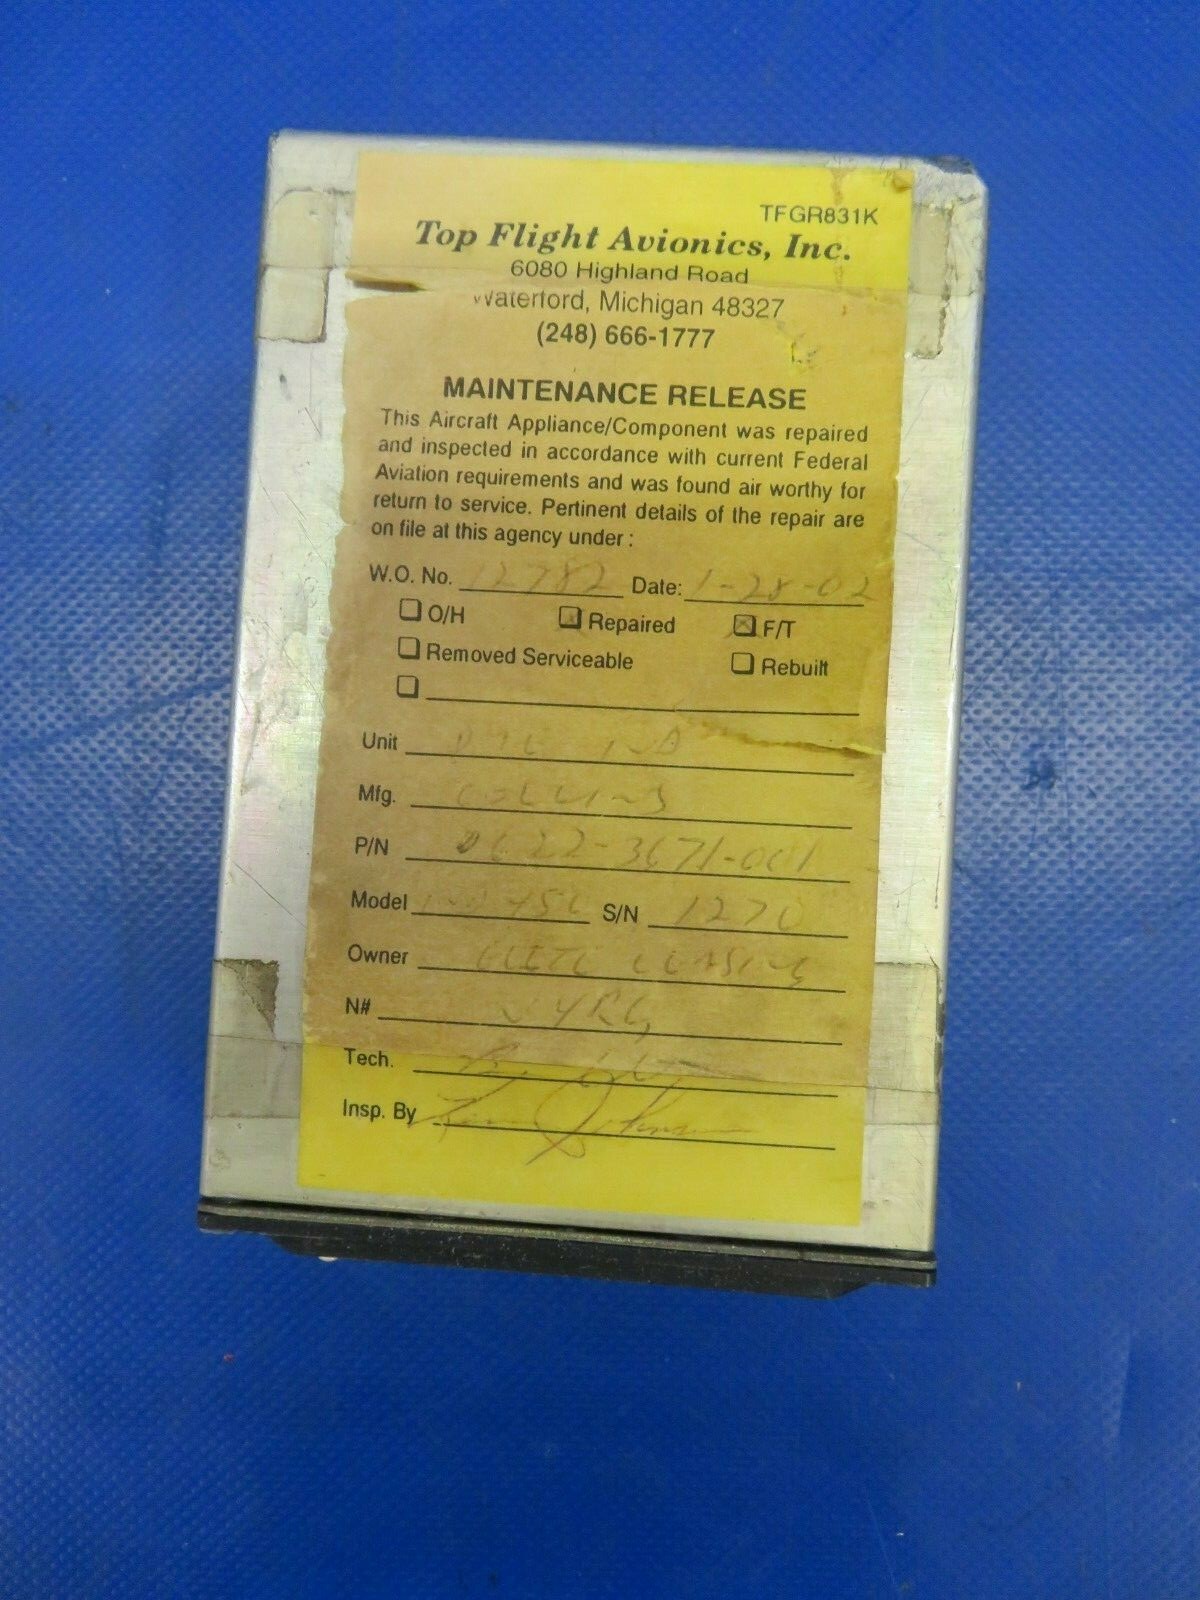 TFGR831K
Top Flight Avionics, Inc.
6080 Highland Road
Waterford, Michigan 48327
(248) 666-1777
MAINTENANCE RELEASE
This Aircraft Appliance/Component was repaired
and inspected in accordance with current Federal
Aviation requirements and was found air worthy for
return to service. Pertinent details of the repair are
on file at this agency under :
W.O. No. 12782 Date: 1-28-02
O/H Repaired F/T
Removed Serviceable Rebuilt
Unit IND
Mfg. COLLINS
P/N 622-3671-001
Model S/N 1270
Owner LEASING
N#
Tech.
Insp. By